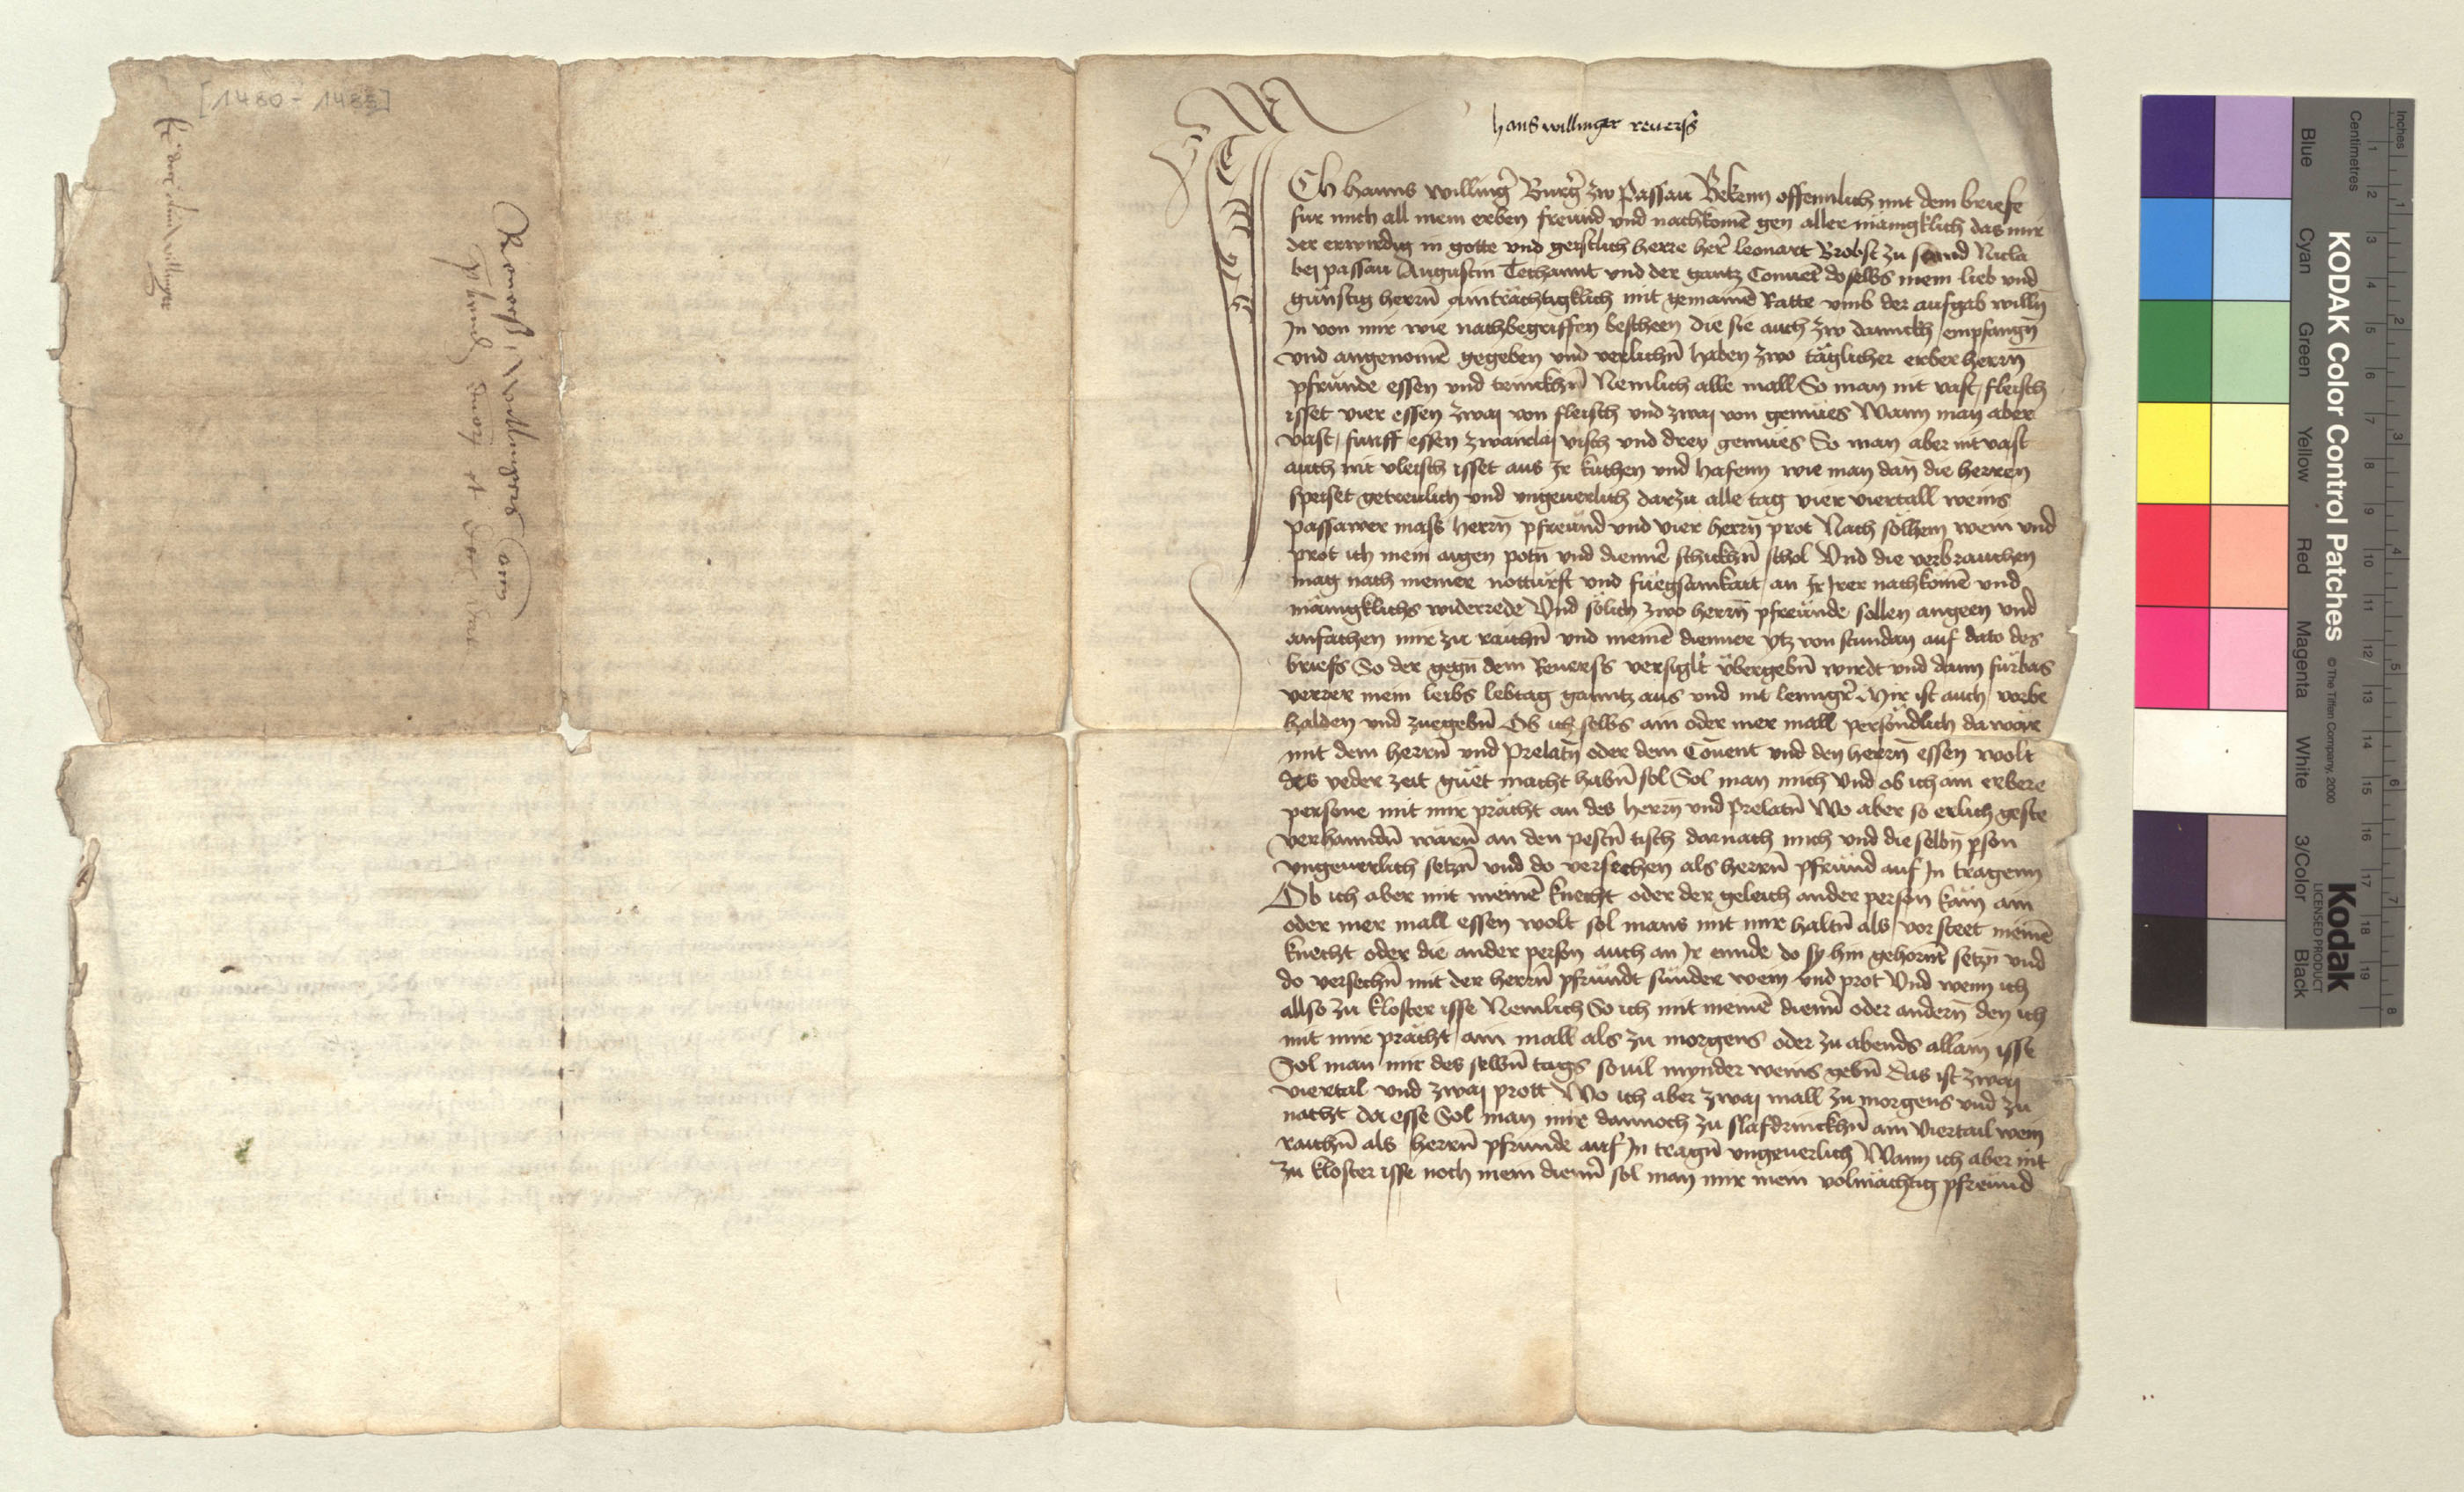 [1480 - 1485]
hans willinger reuers
Ich Hanns willingr̄ Burgr̄ zw Passau Bekenn offennlich mit dem briefe
fur mich all mein erben freund vnd nachkomē gen aller mänigklich das mir
der erwirdig in gotte vnd geistlich herre her leonart Brobst zu sand Nicla
bei passau Augustin Techannt vnd der gantz Conuēt doselbs mein lieb vnd
günstig herrn̄ ainträchtigklich mit gemainē Ratte vmb der aufgab willn̄
In von mir wie nachbegriffen bescheen die sie auch zw danckh empfangn̄
vnd angenomē gegeben vnd verlichn̄ haben zwo täglicher erber herrn̄
pfründe essen vnd trinckhn̄ Nemlich alle mall So man nit vast fleisch
isset vier essen zwai von fleisch vnd zwai von gemües Wann man aber
vast funff essen zwairlai visch vnd drey gemües So man aber nit vast
auch nit vleisch isset aus Ir kuchen vnd hafenn wie man dan̄ die herren
speiset getreulich vnd vngeuerlich darzu alle tag vier viertall weins
passawer mass herrn̄ pfreünd vnd vier herrn̄ prot Nach sölhem wein vnd
prot ich mein aigen potn̄ vnd diennēr schickhn̄ schol Vnd die verbrauchen
mag nach meiner notturft vnd füegsamkait an Ir Irer nachkomē vnd
mänigklichs widerrede Vnd sölich zwo herrn̄ pfreünde sollen angeen vnd
anfachen mir zu raichn̄ vnd meinē dienner ytz von stundan auf dato des
briefs So der gegn̄ dem Reuerss versiglt übergebn̄ wirdt vnd dann fürbas
verrer mein leibs lebtag ganntz aus vnd nit lenngr̄ Mir ist auch vorbe
halden vnd zuegebn̄ Ob ich selbs ain oder mer mall persöndlich da wär
mit dem herrn̄ vnd Prelatn̄ oder dem Cōuent vnd den herrn̄ essen wolt
des yeder zeit guet macht habn̄ sol Sol man mich vnd ob ich ain erbere
persone mit mir prächt an des herrn̄ vnd Prelatn̄ Wo aber so erlich geste
verhanndn̄ wärn̄ an den pestn̄ tisch darnach mich vnd die selbn̄ pson
vngeuerlich setzn̄ vnd do versechen als herrn̄ pfründ auf In tragenn
Ob ich aber mit meinē knecht oder der geleich ander person käm ain
oder mer mall essen wolt sol mans mit mir haltn̄ als vor steet meinē
knecht oder die ander person auch an Ir ennde do sy hin gehörnt setzn̄ vnd
do versechn̄ mit der herrn̄ pfründt sunder wein vnd prot Vnd wenn ich
allso zu kloster isse Nemlich So ich mit meinē dienn̄ oder andern̄ den ich
mit mir prächt ain mall als zu morgens oder zu abends allain isse
Sol man mir des selbn̄ tags souil mynder weins gebn̄ Das ist zwai
viertal vnd zwai prott Wo ich aber zwai mall zu morgens vnd zu
nacht da esse Sol man mir dannoch zu slafdrinckhn̄ ain viertail wein
raichn̄ als herrn̄ pfründe auf In tragn̄ vngeuerlich Wann ich aber nit
zu kloster isse noch mein dienn̄ sol man mir mein volmächtig pfreünd
Inches
Centimetres
KODAK Color Control Patches
© The Tiffen Company, 2000
Kodak
LICENSED PRODUCT
Blue Cyan Green Yellow Red Magenta White 3/Color Black
1 2 3 4 5 6 7 8 9 10 11 12 13 14 15 16 17 18 19
1 2 3 4 5 6 7 8